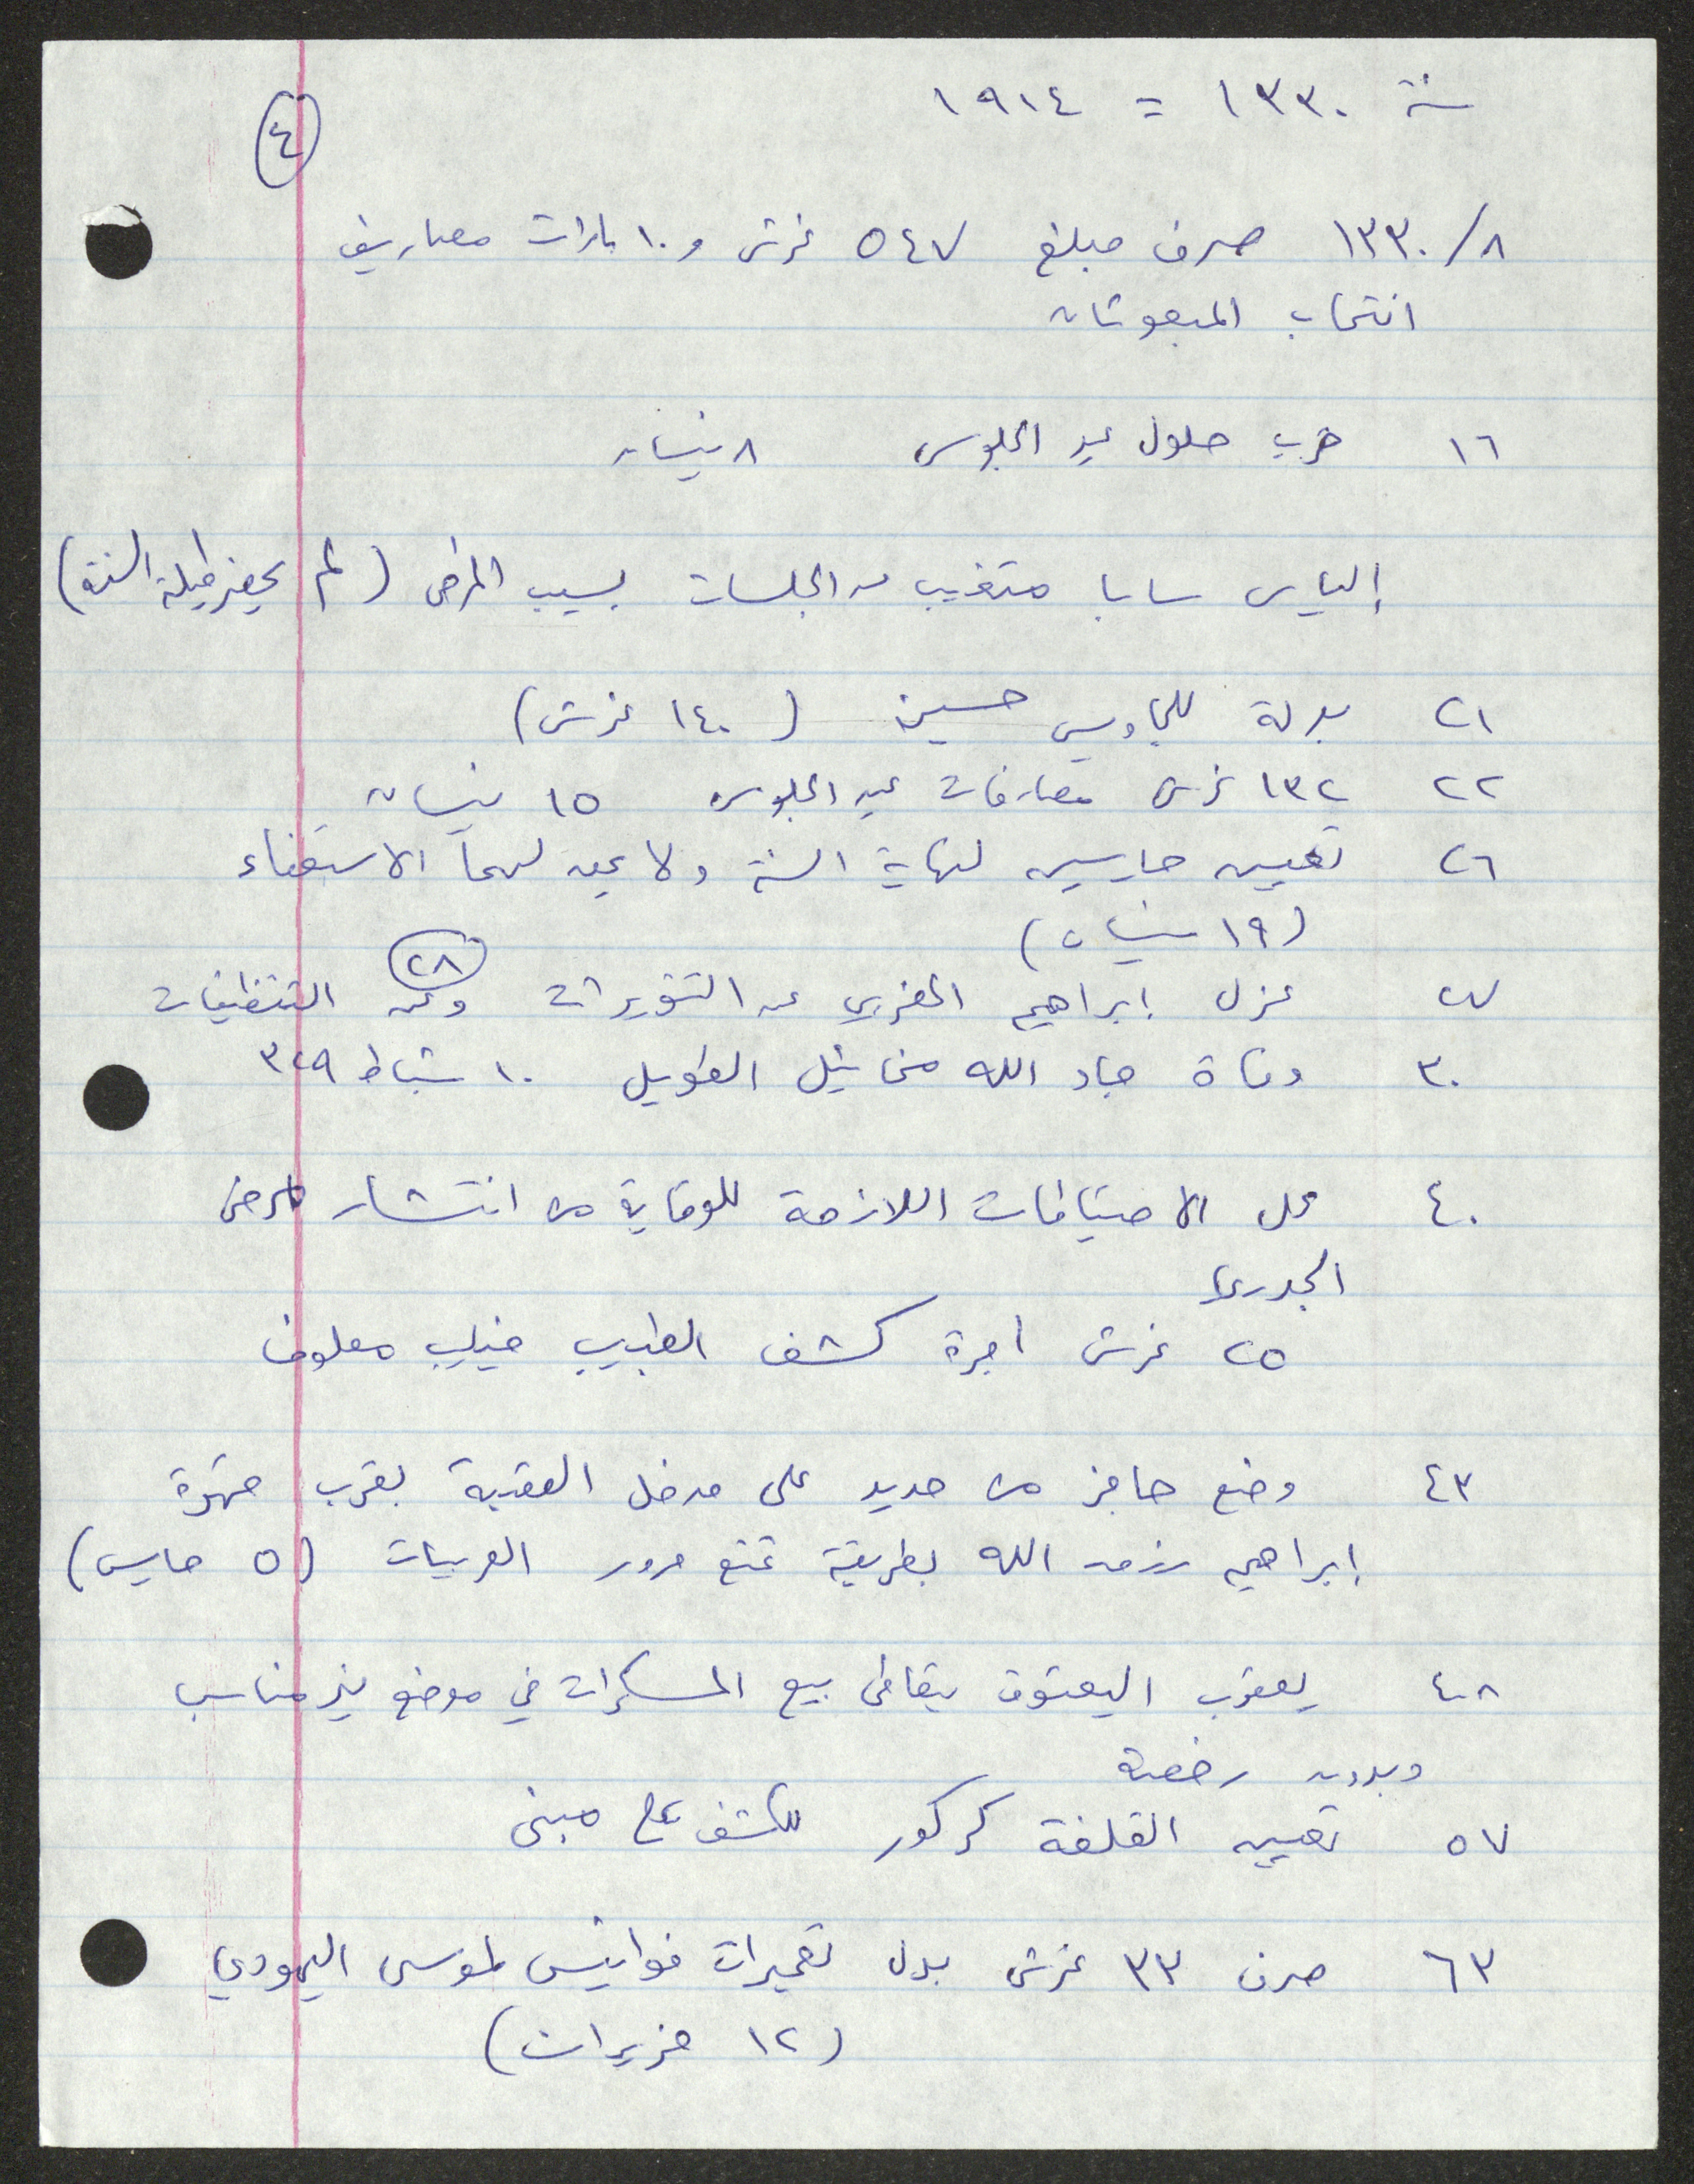 سنة ١٣٣٠ = ١٩١٤
٤
١٣٣٠/٨ صرف مبلغ ٥٤٧ غرش و ١٠ بارات مصاريف
انتخاب المبعوثان
١٦ قرب حلول عيد الجلوس ٨ نيسان
إلياس سابا متغيب عن الجلسات بسبب المرض (لم يحضر طيلة السنة)
٢١ بدلة للجاويش حسين (١٤٠ غرش)
٢٢ ١٣٢ غرش مصارفات عيد الجلوس ١٥ نيسان
٢٦ تعيين حارسين لنهاية السنة ولا يحق لهما الاستعفاء
(١٩ نيسان)
٢٧ عزل ابراهيم المغربي عن التنويرات وعن ٢٨ التنظيفات
٣٠ وفاة جاد الله مخائيل الطويل ١٠ شباط ٣٢٩
٤٠ عمل الاحتياطات اللازمة للوقاية من انتشار مرض
الجدري
٢٥ غرش اجرة كشف الطبيب فيليب معلوف
٤٣ وضع حاجز من حديد على مدخل العقبة بقرب قهوة
إبراهيم رزق الله بطريقة تمنع مرور العربيات (٥ مايس)
٤٨ يعقوب اليعقوب يتعاطى بيع المسكرات في موضع غير مناسب
وبدون رخصة
٥٧ تعيين القلفة كركور للكشف على مبنى
٦٣ صرف ٣٣ غرش بدل تعميرات فوانيس لموسى اليهودي
(١٢ حزيران)